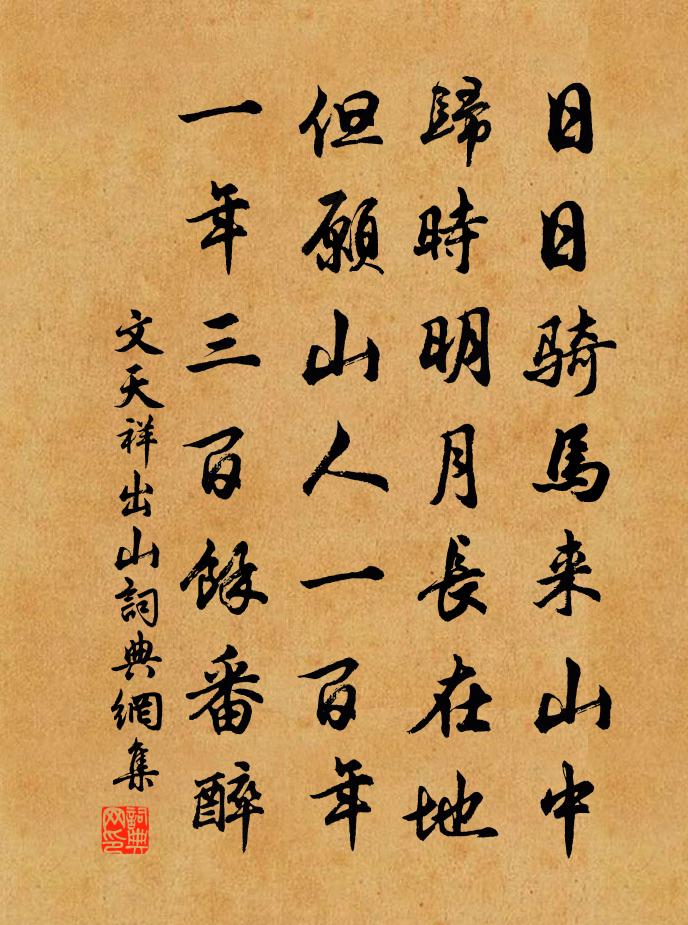 日日騎馬来山中
歸時明月長在地
但願山人一百年
一年三百餘番醉
文天祥出山詞典網集
詞典網印